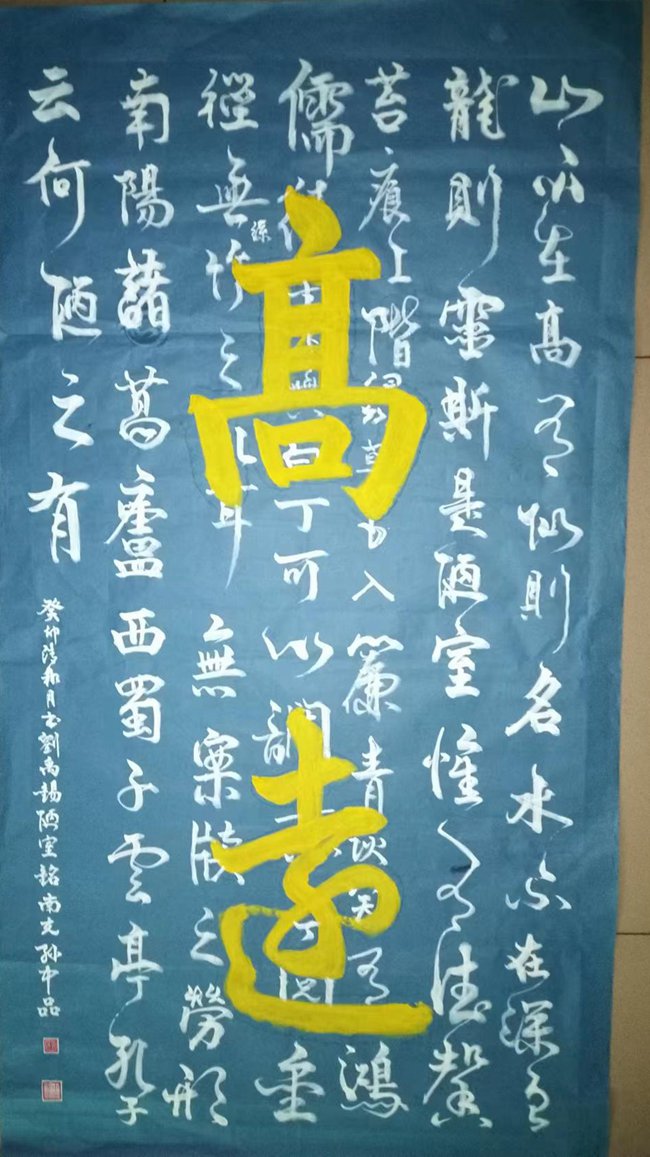 高遠
山不在高有仙則名水不在深有
龍則靈斯是陋室惟吾德馨
苔痕上階綠草色入簾青談笑有鴻
儒往白丁可以調金
經無竹之耳無案牘之勞形
南陽諸葛廬西蜀子雲亭孔子
云何陋之有
癸卯清和月書劉禹錫陋室銘南充孫中品